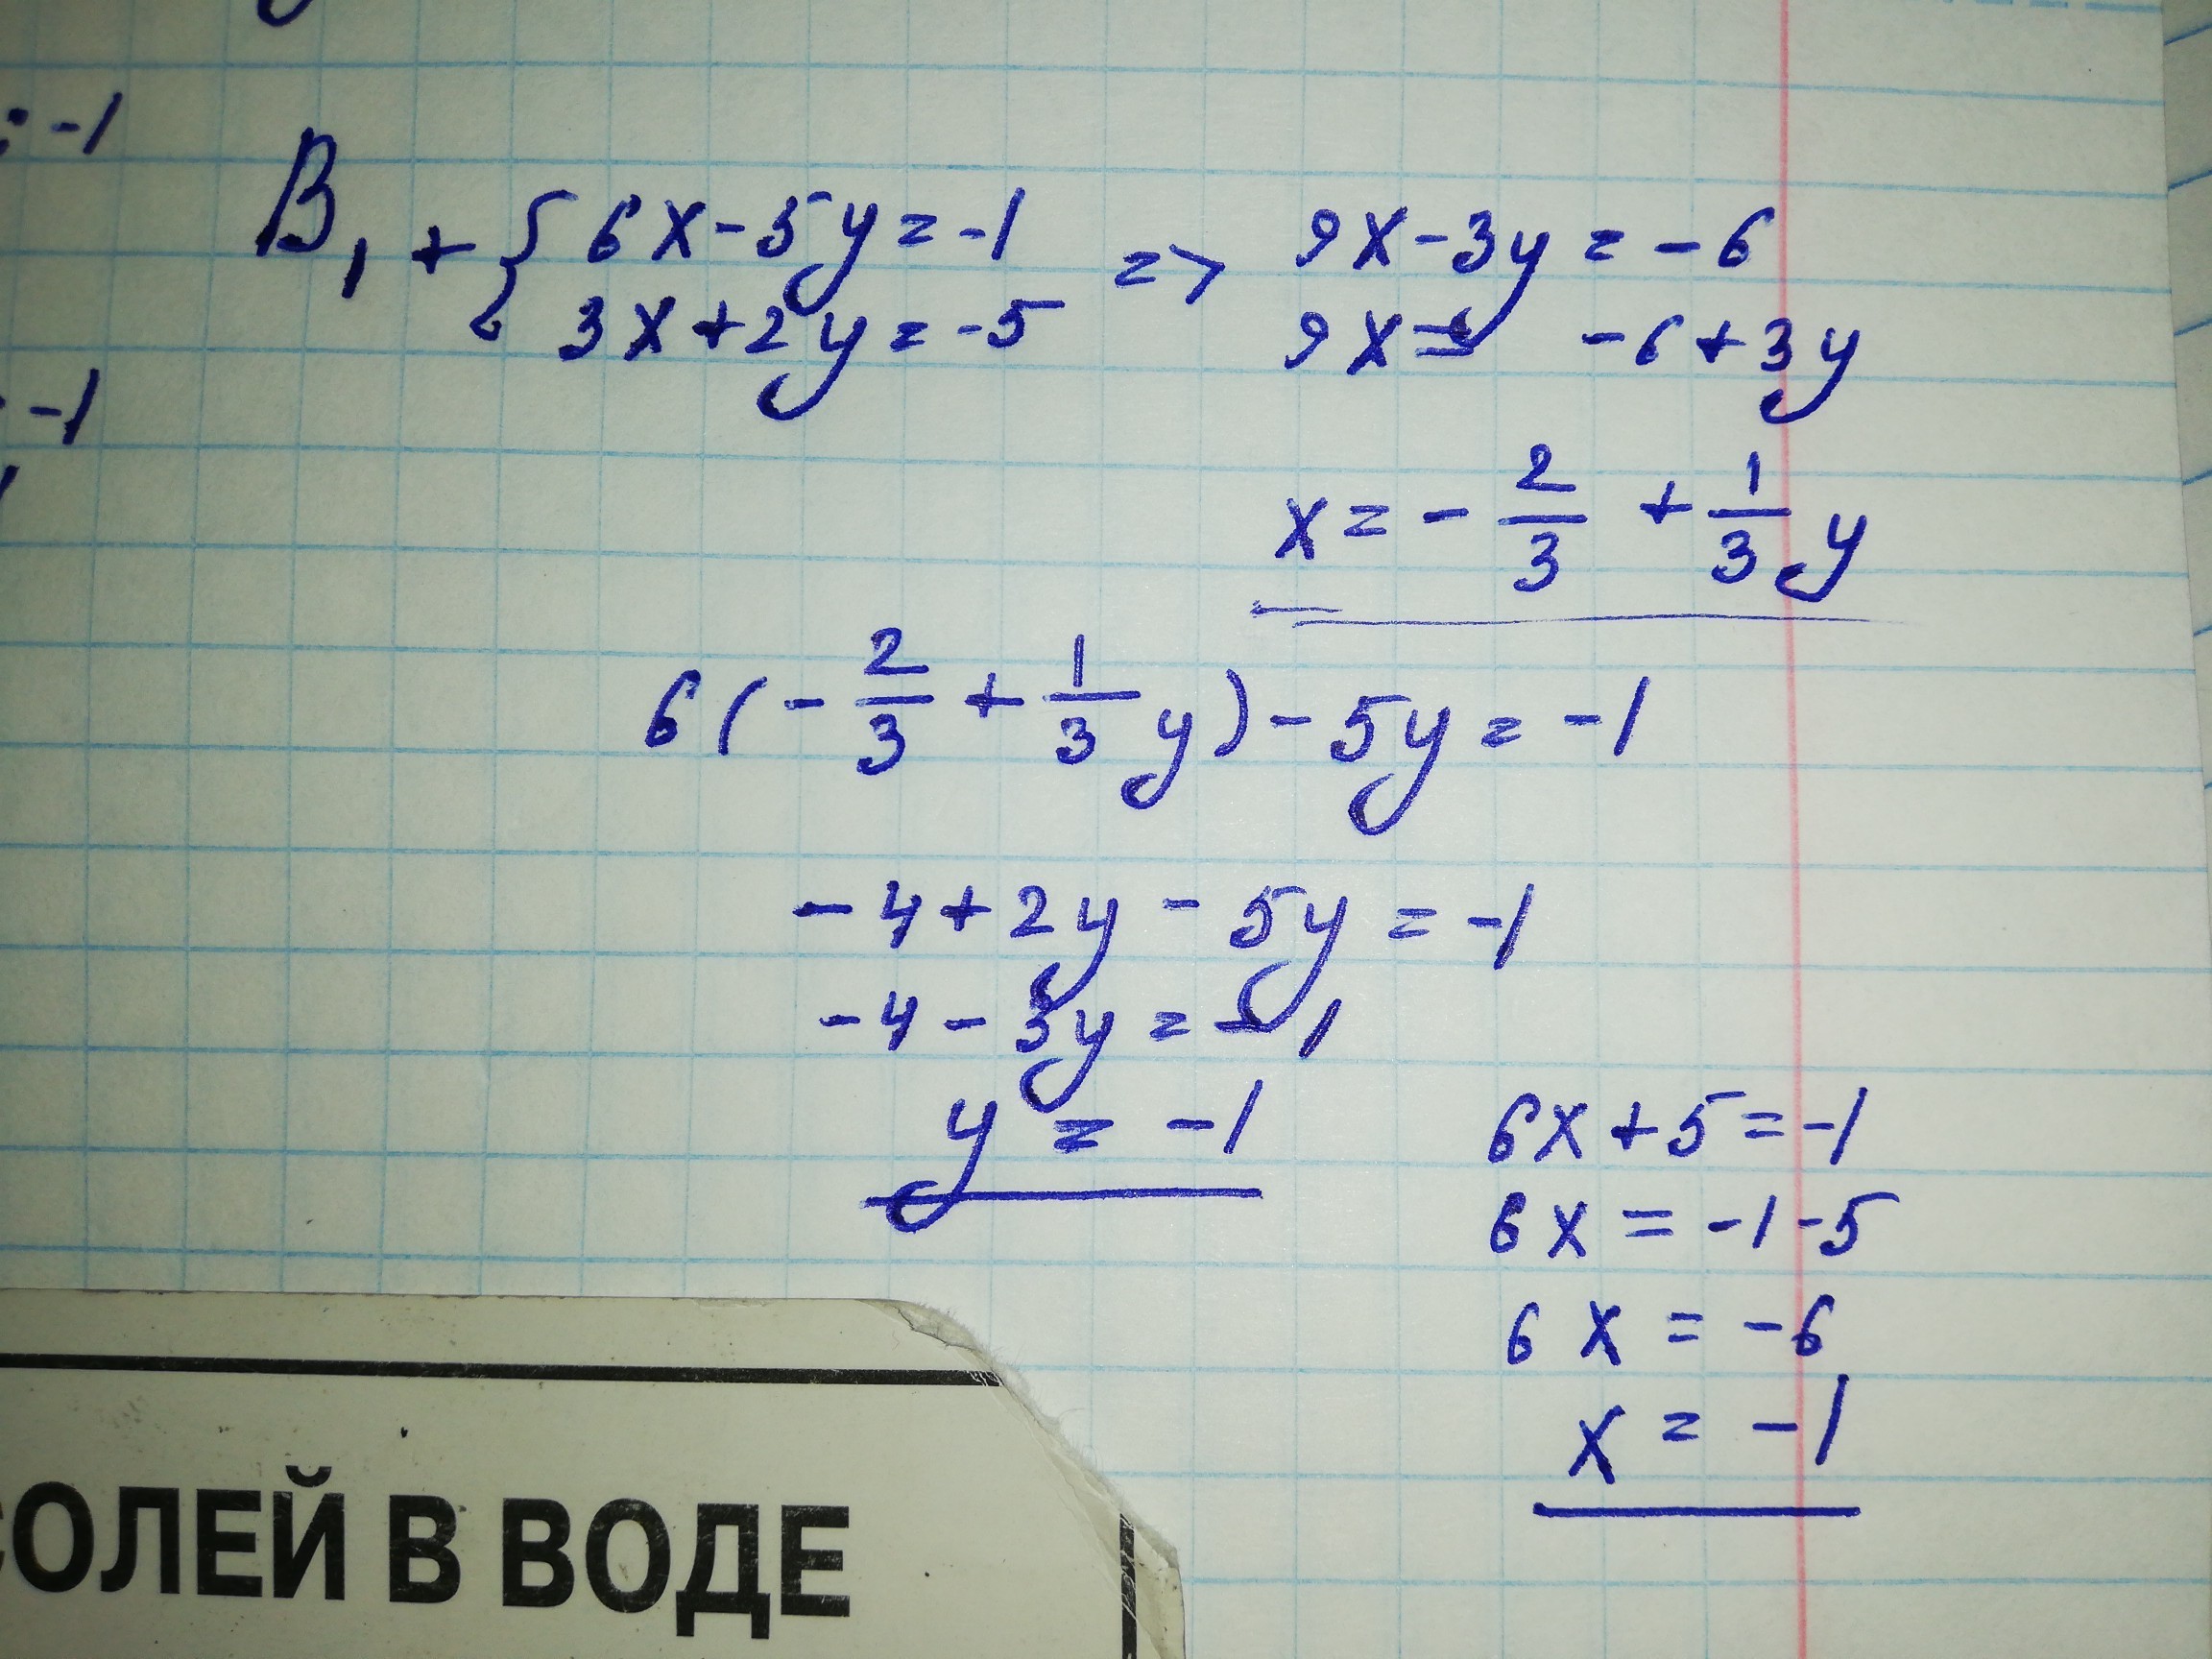 : -1
B₁ + { 6x - 5y = -1 => 9x - 3y = -6
3x + 2y = -5 9x = -6 + 3y
-1
x = - 2/3 + 1/3 y
6(- 2/3 + 1/3 y) - 5y = -1
-4 + 2y - 5y = -1
-4 - 3y = -1
y = -1
6x + 5 = -1
6x = -1 - 5
6x = -6
x = -1
СОЛЕЙ В ВОДЕ